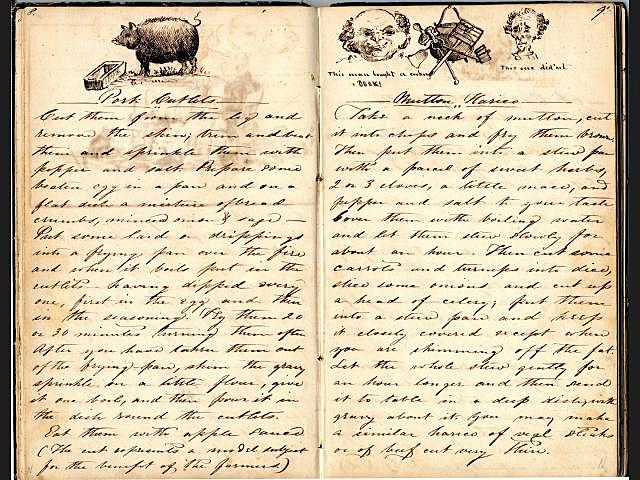 8.
Pork Cutlets.
Cut them from the leg and
remove the skin; trim and beat
them and sprinkle them with
pepper and salt. Prepare some
beaten egg in a pan and on a
flat dish a mixture of bread
crumbs, minced onion & sage —
Put some lard or drippings
into a frying pan over the fire
and when it boils put in the
cutlets having dipped every
one, first in the egg and then
in the seasoning. Fry them 20
or 30 minutes turning them often
After you have taken them out
of the frying pan, skim the gravy
sprinkle in a little flour, give
it one boil, and then pour it in
the dish round the cutlets.
Eat them with apple sauce
(The cut represents a model subject
for the benefit of the farmers)
9.
This man bought a
BOOK!
This one did'nt
Mutton Harico
Take a neck of mutton, cut
it into chops and fry them brown.
Then put them into a stew pan
with a parcel of sweet herbs,
2 or 3 cloves, a little mace, and
pepper and salt to your taste
Cover them with boiling water
and let them stew slowly for
about an hour. Then cut some
carrots and turnips into dice,
slice some onions and cut up
a head of celery; put them
into a stew pan and keep
it closely covered except when
you are skimming off the fat.
Let the whole stew gently for
an hour longer and then send
it to table in a deep dish, with
gravy about it. You may make
a similar harico of veal steaks
or of beef cut very thin.